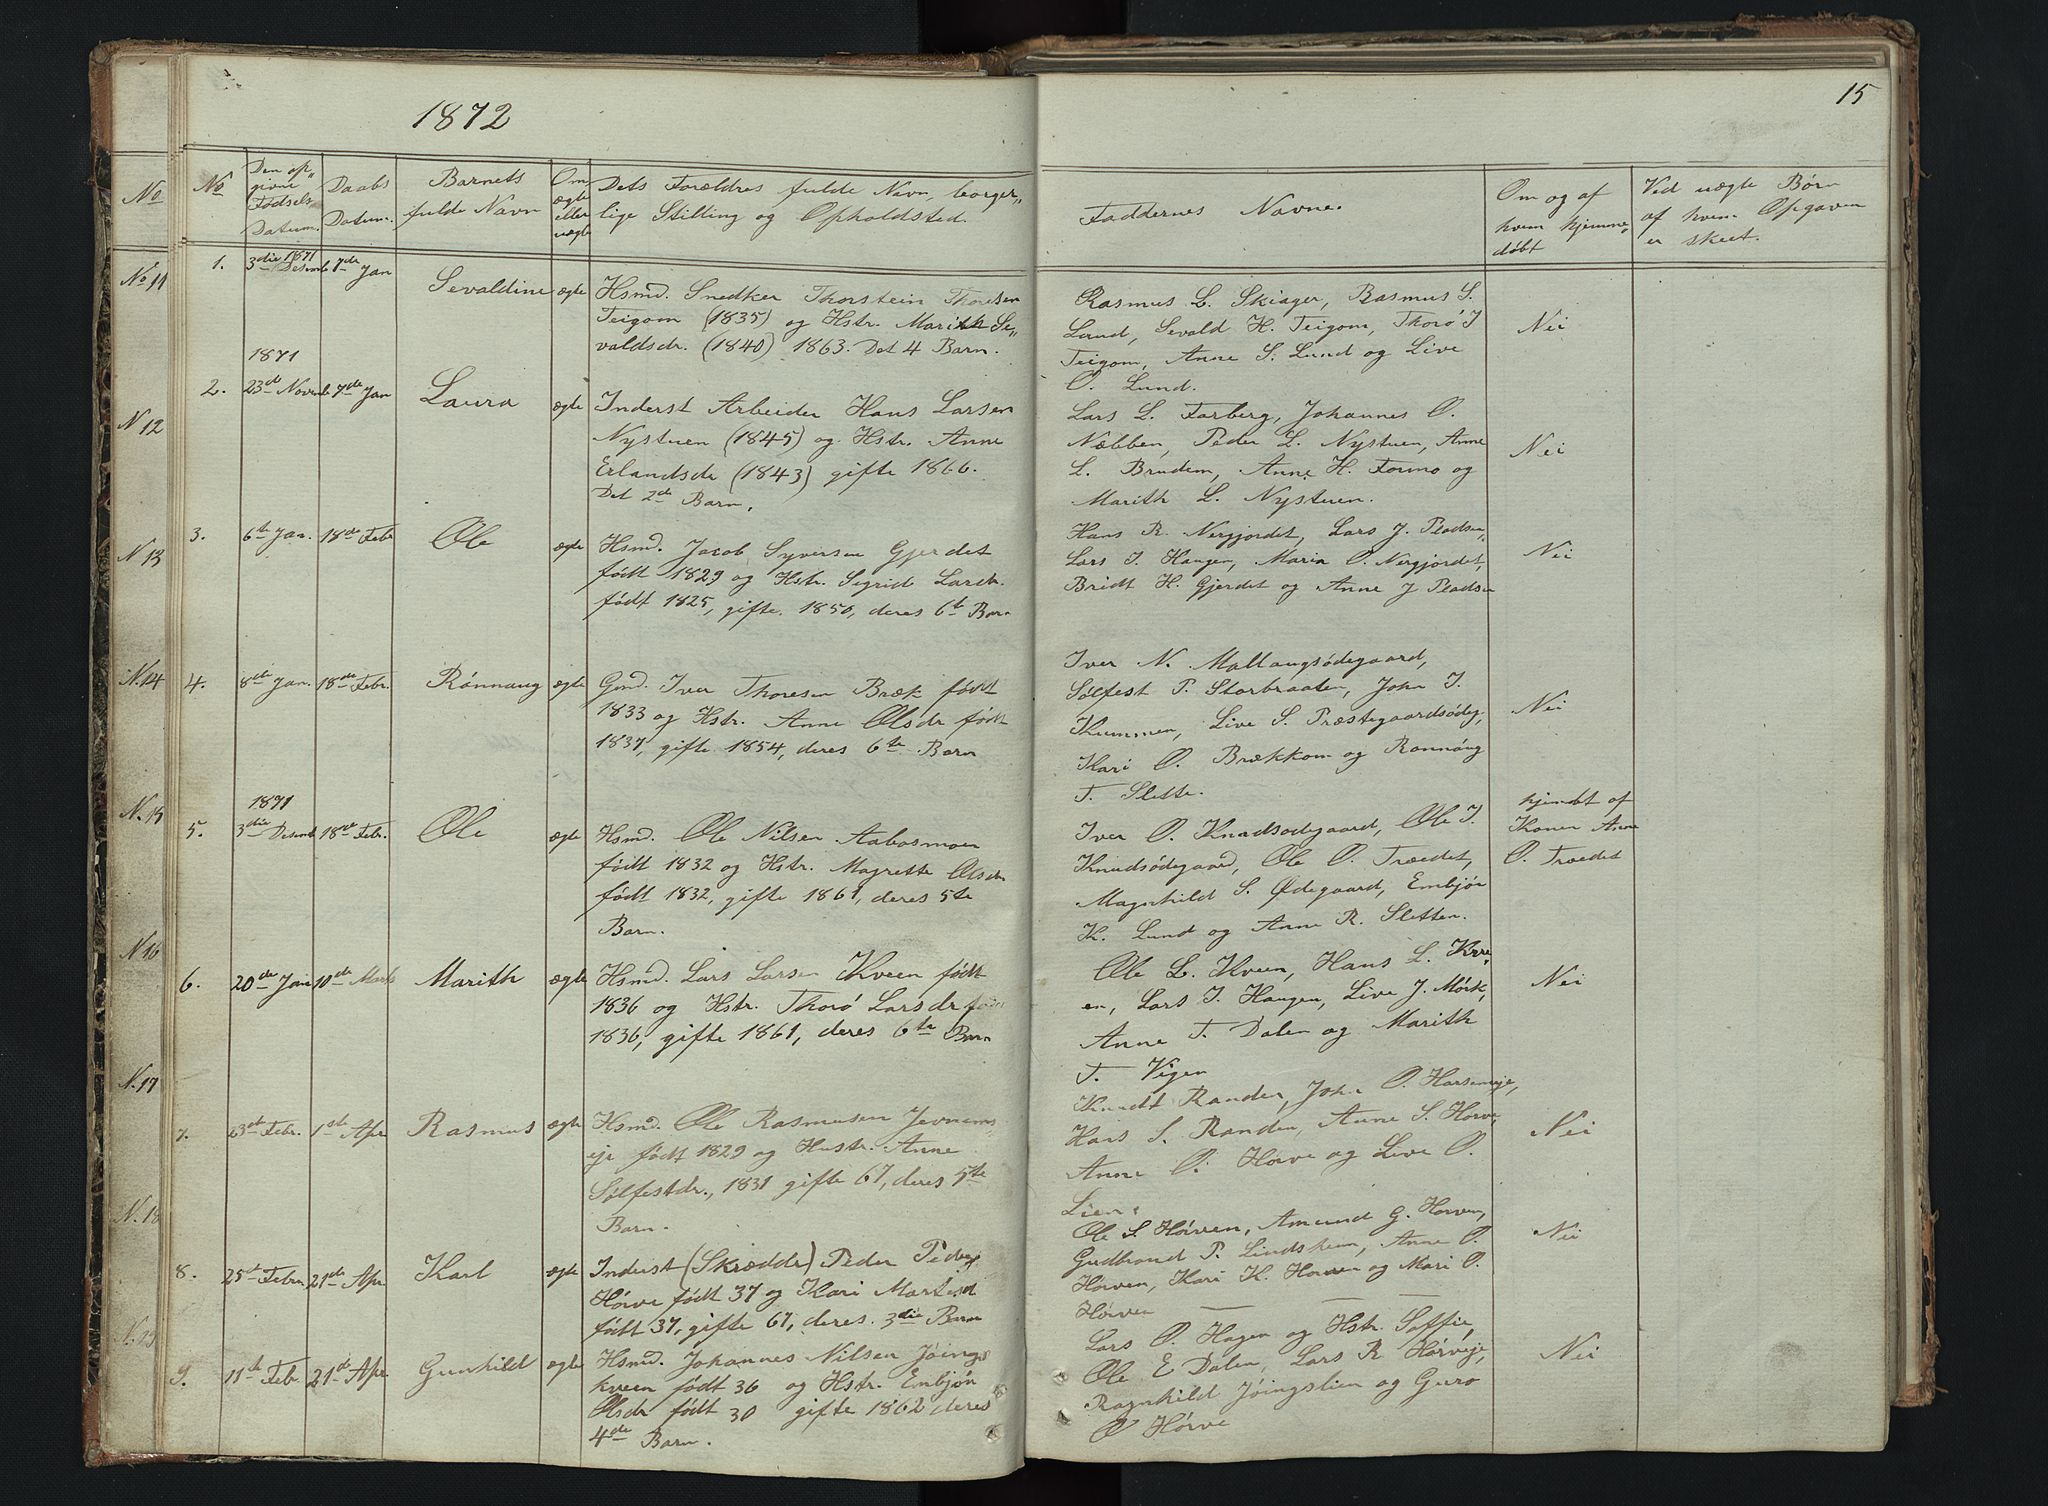 1872
15
No
No
Den op„
givne
Fødsels
Datum.
Daabs
Datum.
Barnets
fulde Navn
Om
ægte
eller
uægte
Dets Forældres fulde Navn, borger„
lige Stilling og Opholdsted.
Faddernes Navne.
Om og af
hvem hjemme„
døbt
Ved uægte Børn
af hvem Opgaven
er skeet.
No 11
N 12
N 13
N. 14
N. 15
N. 16
N. 17
N. 18
1.
1871
3die Desemb
7de Jan
Sevaldine
ægte
Hsmd. Snedker Thorstein Thoresen
Teigom (1835) og Hstr. Marith Se„
valdsdr. (1840) 1863. Det 4 Barn.
Rasmus L. Skiager, Rasmus S.
Lund, Sevald H. Teigom, Thorø T
Teigom, Anne S. Lund og Live
O. Lund.
Nei
1871
2.
23de Novemb
7de Jan
Laura
ægte
Inderst Arbeider Hans Larsen
Nystuen (1845) og Hstr. Anne
Erlandsdr (1843) gifte 1866.
Det 2de Barn.
Lars L. Forberg, Johannes O.
Næbben, Peder L. Nystuen, Anne
L. Bruden, Anne H. Formo og
Marith L. Nystuen.
Nei
3.
6te Jan.
18de Febr
Ole
ægte
Hsmd. Jacob Syversen Gjerdet
født 1829 og Hstr. Sigrid Larsdr.
født 1825, gifte 1850, deres 6te Barn
Hans R. Nergjordet, Lars J. Pladsen,
Lars I. Haugen, Maria O. Nergjordet,
Bridt H. Gjerdet og Anne J Pladsen
Nei
4.
8de Jan.
18de Febr.
Rønnaug
ægte
Gmd. Iver Thoresen Bræk født
1833 og Hstr. Anne Olsdr født
1837, gifte 1854, deres 6te Barn
Iver N. Mallaugsødegaard,
Sølfest P. Storbraaten, John I.
Kummen, Live S. Præstegaardsødeg,
Kari O. Brækkom og Rønnaug
T. Slette.
Nei
1871
5.
3die Desemb
18de Febr.
Ole
ægte
Hsmd. Ole Nilsen Aabosmoen
født 1832 og Hstr. Magrette Olsdr
født 1832, gifte 1861, deres 5te
Barn.
Iver O. Knudsødegaard, Ole I.
Knudsødegaard, Ole O. Træedet,
Magnhild S. Ødegaard, Embjør
K. Lund og Anne R. Sletten.
hjemdt af
Konen Anne
O. Træedet
6.
20de Jan
10de Marts
Marith
ægte
Hsmd. Lars Larsen Kveen født
1836 og Hstr. Thorø Larsdr født
1836, gifte 1861, deres 6te Barn
Ole L. Kveen, Hans L. Kve„
en, Lars I. Haugen, Live J. Mørk,
Anne T. Dalen og Marith
T. Vigen
Nei
7.
23de Febr.
1ste Apr
Rasmus
ægte
Hsmd. Ole Rasmusen Jevnems
eje født 1829 og Hustr. Anne
Sølfestdr., 1831 gifte 67, deres 5te
Barn.
Knudt Randen, John O.
Hans S. Randen, Anne S. Hørve,
Anne O. Hørve og Live O.
Lien.
Nei
8.
25de Febr
21de Apr
Karl
ægte
Inderst (Skrædder) Peder Peders
Hørve født 37 og Kari
født 37, gifte 67, deres 3die Barn
Ole S. Hørven, Amund G. Hørven,
Gudbrand P. Lindsheim, Anne O.
Hørven, Kari K. Hørven og Mari O.
Hørven
Nei
9.
11te Febr
21de Apr
Gunhild
ægte
Hsmd. Johannes Nilsen Jøings
kveen født 36 og Hstr. Embjør
Olsdr født 30 gifte 1862 deres
4de Barn.
Lars O. Hagen og Hstr. Soffie,
Ole E Dalen, Lars R Hørveje,
Ragnhild Jøingslien og Guro
O Hørve
Nei